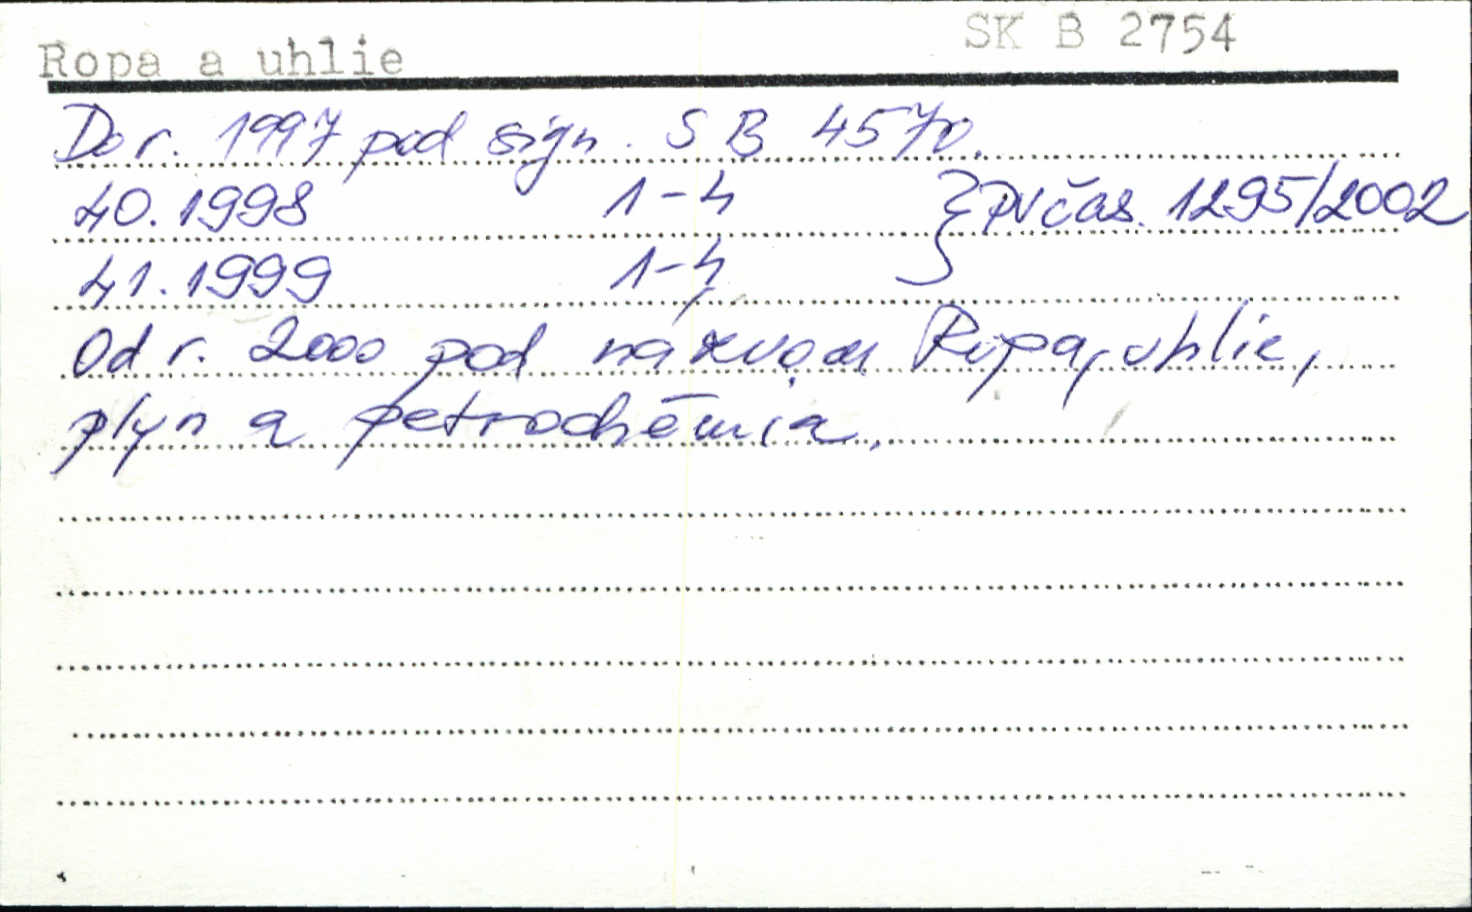 Ropa a uhlie SK B 2754
Do r. 1997 pod sign. S B 4570.
40. 1998 1-4 } PVčas. 1295/2002
41. 1999 1-4
Od r. 2000 pod názvom Ropa, uhlie,
plyn a petrochémia.